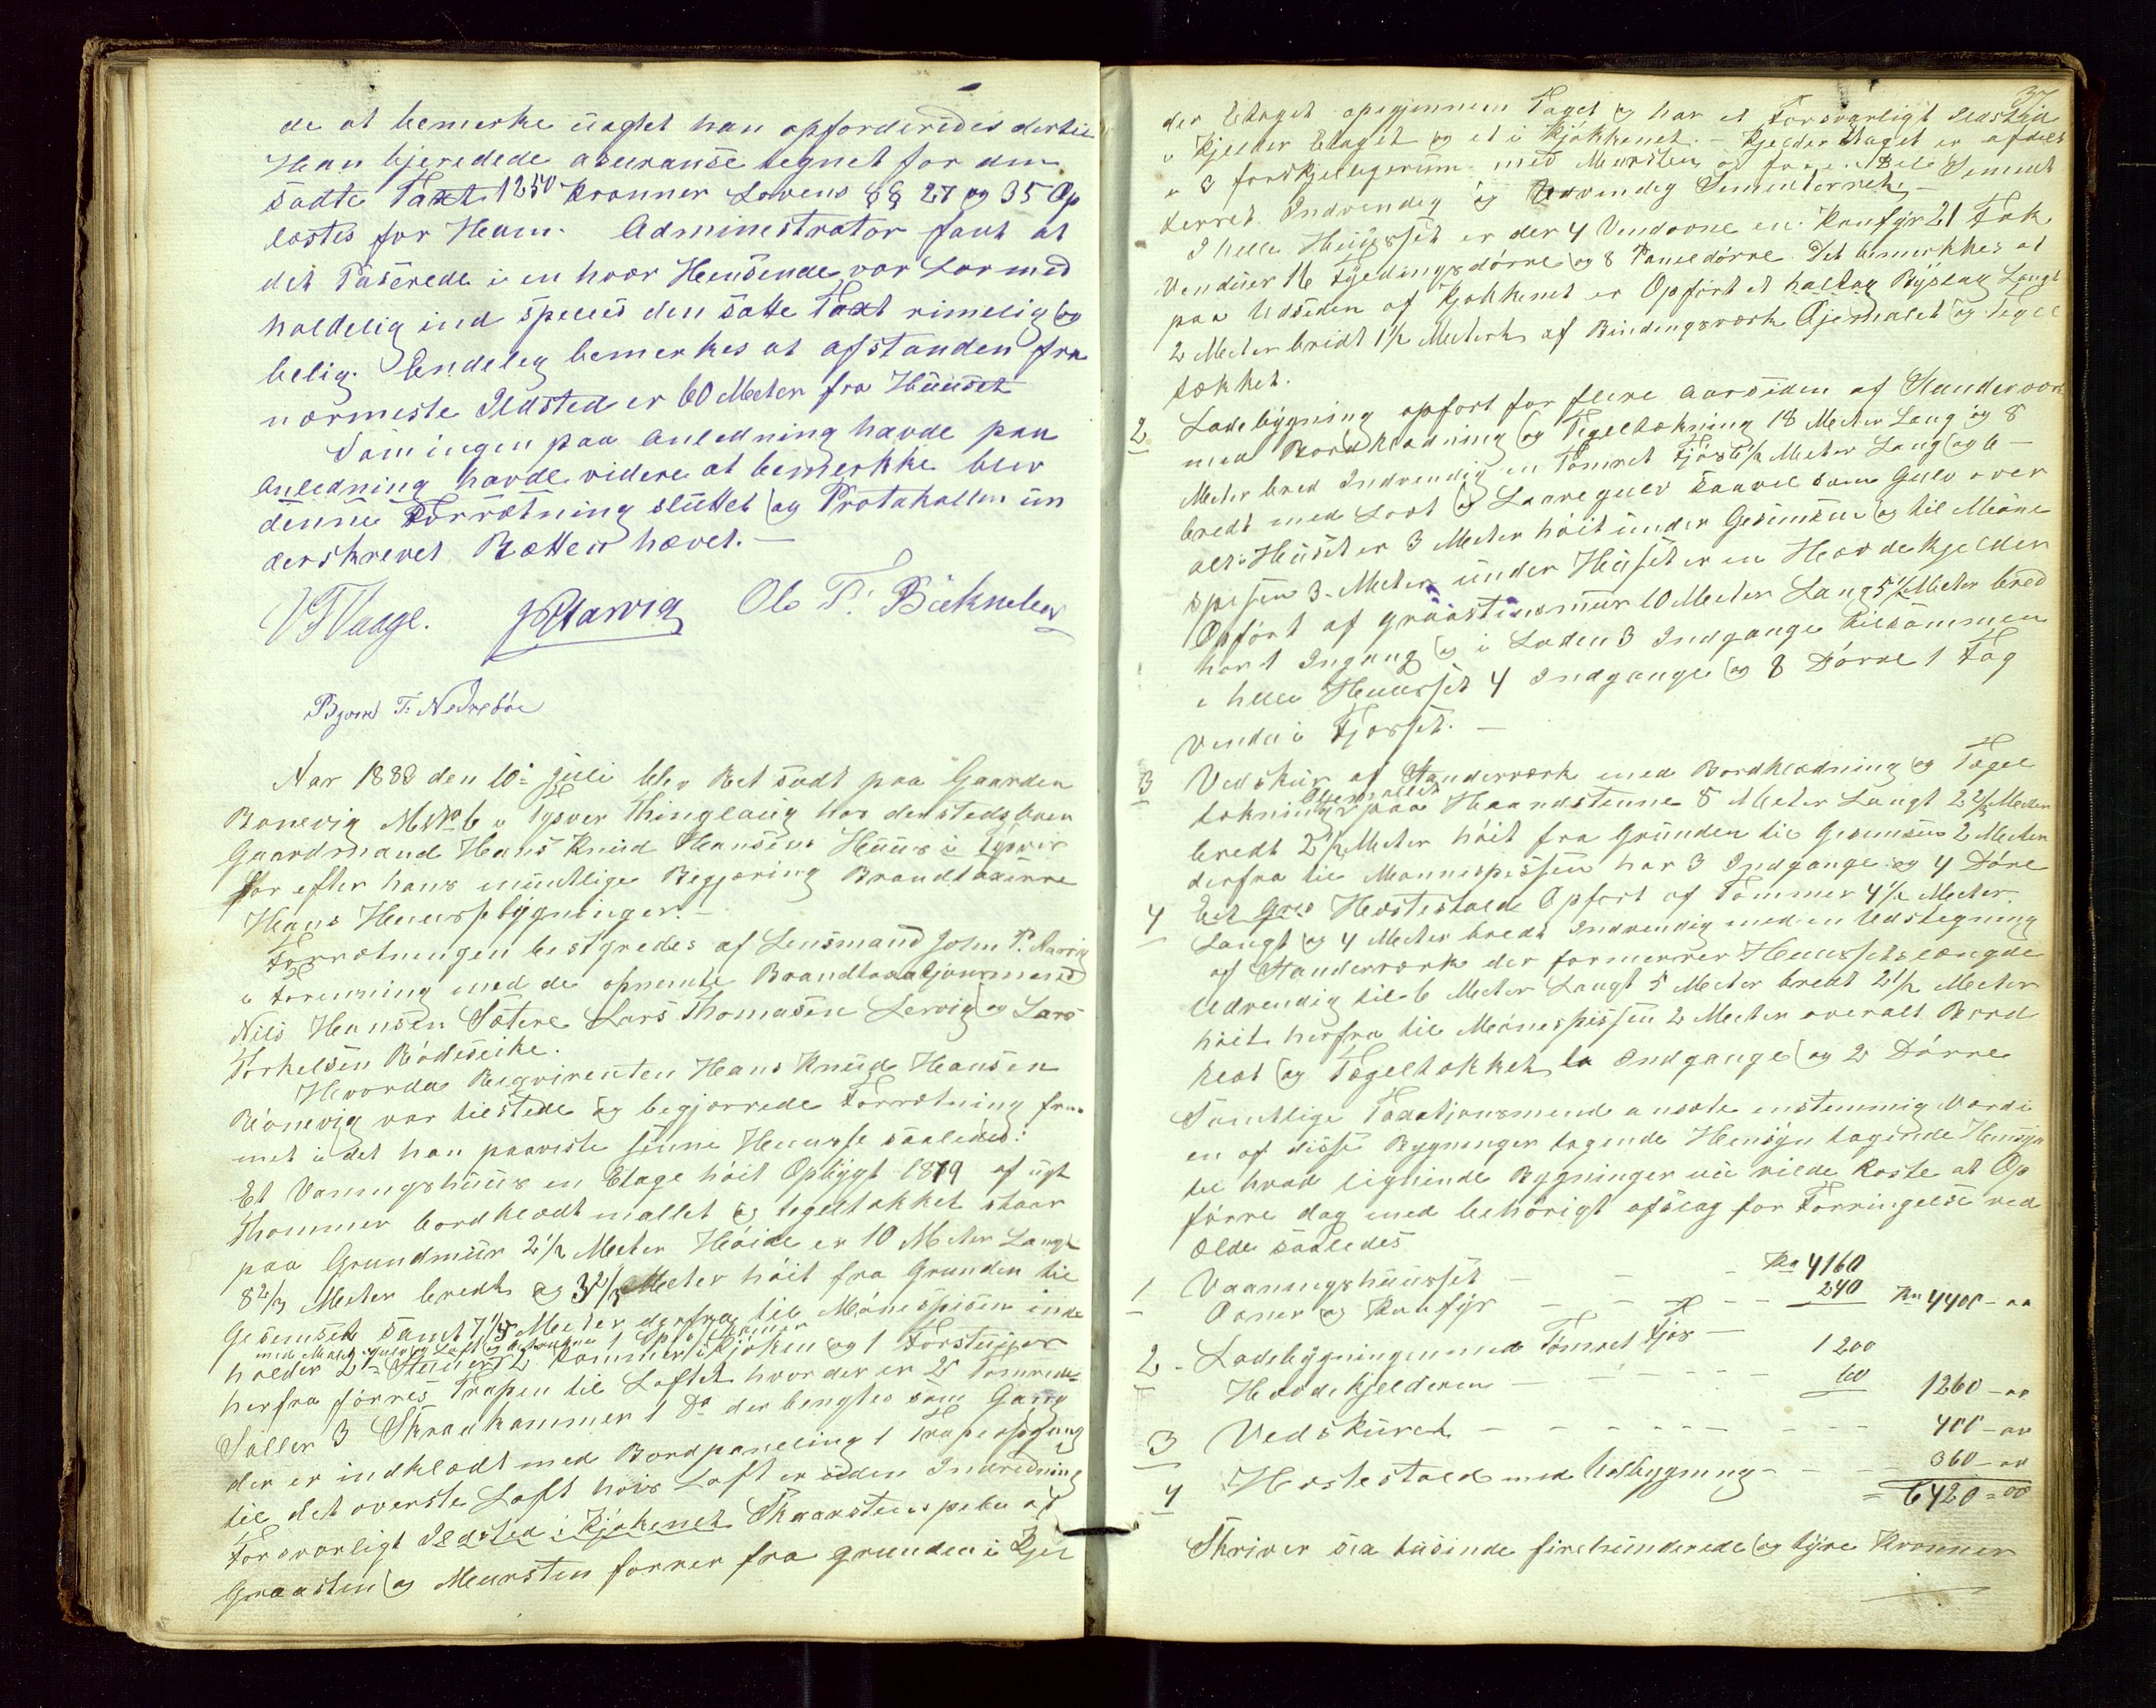 de at bemerke uagtet han opfordredes dertil
Han bjeredede aseuranse tegnet for den
satte Taxt 1250 kronner Lovens §§ 27 og 35 Op
lastes for Ham. Adminestrator fant at
det Paserede i en hvær Hensende var Lormed
holdelig ind speues den satte Taxt rimelig og
belig. Endeleg bemerkes at afstanden fra
nærmeste Ildsted er 60 Meter fra Huuset
Damingen paa anledning havde paa
anledning havde videre at bemerkke blev
denne Forrætning sluttet og Protakollen un
derskrevet Rætten hævet.—
Ole T.
Aar 1888 den 10- juli blev Ret sadt paa Gaarden
Bonevig M No 6 i Tysver Thinglaug hos den steds boen
Gaardmand Hans Knud Hansens Huus i Tysvær
for efter hans muntlige Begjæring Brandtaxerre
Hans Huussebygninger.—
Forrætningen bestyredes af Lensmand John P. Narvig
i Forening med de opnemte Brandtaxatjonsmend
Nils Hansen Satere Lars Thomasen Lervig og Lars
Torkelsen Rødseike.
Hvorda Reqvirenten Hans Knud Hansen
Bonevig var tilstede og begjærrede Forrætning frem
met i det han paaviste sinne Huusse saaledes:
Et Vaaningshuus en Etage høit Opbygt 1879 af
Thømmer bordklædt mallet og tegeltækket staar
paa Grundmur 2 1/2 Meter Høide er 10 Meter Langt
8 2/3 Meter bredt og 3 2/3 Meter høit fra Grunden til
Gesemset samt Meter derfra til Mønespisen inde
holder 2 Stuer 2 Kammer 1 Kjøken og 1 Forstuer
herfra førres Trapen til Loftet hvor der er 2 Tømrede
Saller 3 Skraakammer 1 Do der bengtes som Gang
der er indklædt med Bordpaneling 1 Trapeopgang
til det øverste Loft hvis Loft er uden Indredning
Forsvarligt Ildsted i Kjøkenet Skaarstenspebe af
Graasten og Muursten førrer fra grunden i Kjel
37
der Etaget opigjennem Taget og har et Forsvarligt Ildsted
i Kjelder Etaget og et i Kjøkkenet.— Kjelder Etaget er afdelt
i 3 forskjelligerum med Mursten og Sement
terret Indvendig og Udvendig Sementerret.—
I hele Huusset er der 4 Vindovne en Komfyr 21 Fak
Venduer 16 Fyldingsdørre og 8 Paneldørre. Det bemerkkes at
paa Udsiden af Kjøkkenet er Opført et halvtag Byslag Langt
2 Meter bridt 1 1/2 Meterh af Bindingsværk Ojemalet og Tegel
tækket.
2 Ladebygning opført for flere aarsiden af Standerværk
med Bordklædning og Tegeltækning 18 Meter Lang og 8
Meter bred Indvendig en Tømret Fjøs 6 1/2 Meter Lang og 6—
bredt med Loft og Laavegulv saavel som Gulv over
alt. Huset er 3 Meter høit under Gesimsen og til Møne
spesen 3 Meter under Huset er en Hævdekjelder
Opført af graastensmur 10 Meter Lang 5 1/2 Meter bred
har 1 Ingang og i Laden 3 Indgange tilsammen
i hele Huusset 4 Indgange og 8 Dørre 1 Fag
Vendu i Fjøsset.—
3 Vedskur af Standerværk med Bordklædning og Tegel
tækning paa Haandstenne 8 Meter Langt 2 Meter
bredt 2 1/2 Meter høit fra Grunden til Gesemsen 2 Meter
derfra til Mønnespissen har 3 Indgange og 4 Døre
4 Et Hestestald Opført af Tømmer 4 1/2 Meter
Langt og 4 Meter bredt Indvendig med en Udstegning
af Standerværk der formerrer Huussetslængde
Udvendig til 6 Meter Langt 5 Meter bredt 2 1/2 Meter
høit herfra til Mønespissen 2 Meter overalt Bord
klæt og Tegeltækket to Indgange og 2 Dørre
Samtlige Taxatjonsmend ansatte enstemmig Værdi
en af disse Bygninger tagende Hensyn tagende Hensyn
til hvad lignende Bygninger nu vilde koste at Op
førre dog med behørigt afslag for Forringelse ved
Ælde saaledes
1 Vaaningshuusset — — Kr 4160
Ovner og Komfyr — — — — 240 Kr 4400—00
2— Ladebygningen med Tømret Fjøs — 1200
Hævdekjelderen — — — — 60 1260—00
3 Vedskuret — — — — — — 400—00
4 Hestestald med Udbygning — — 360—00
= 6420=00
Skriver sex tusinde firehunderede og tyve Kronner